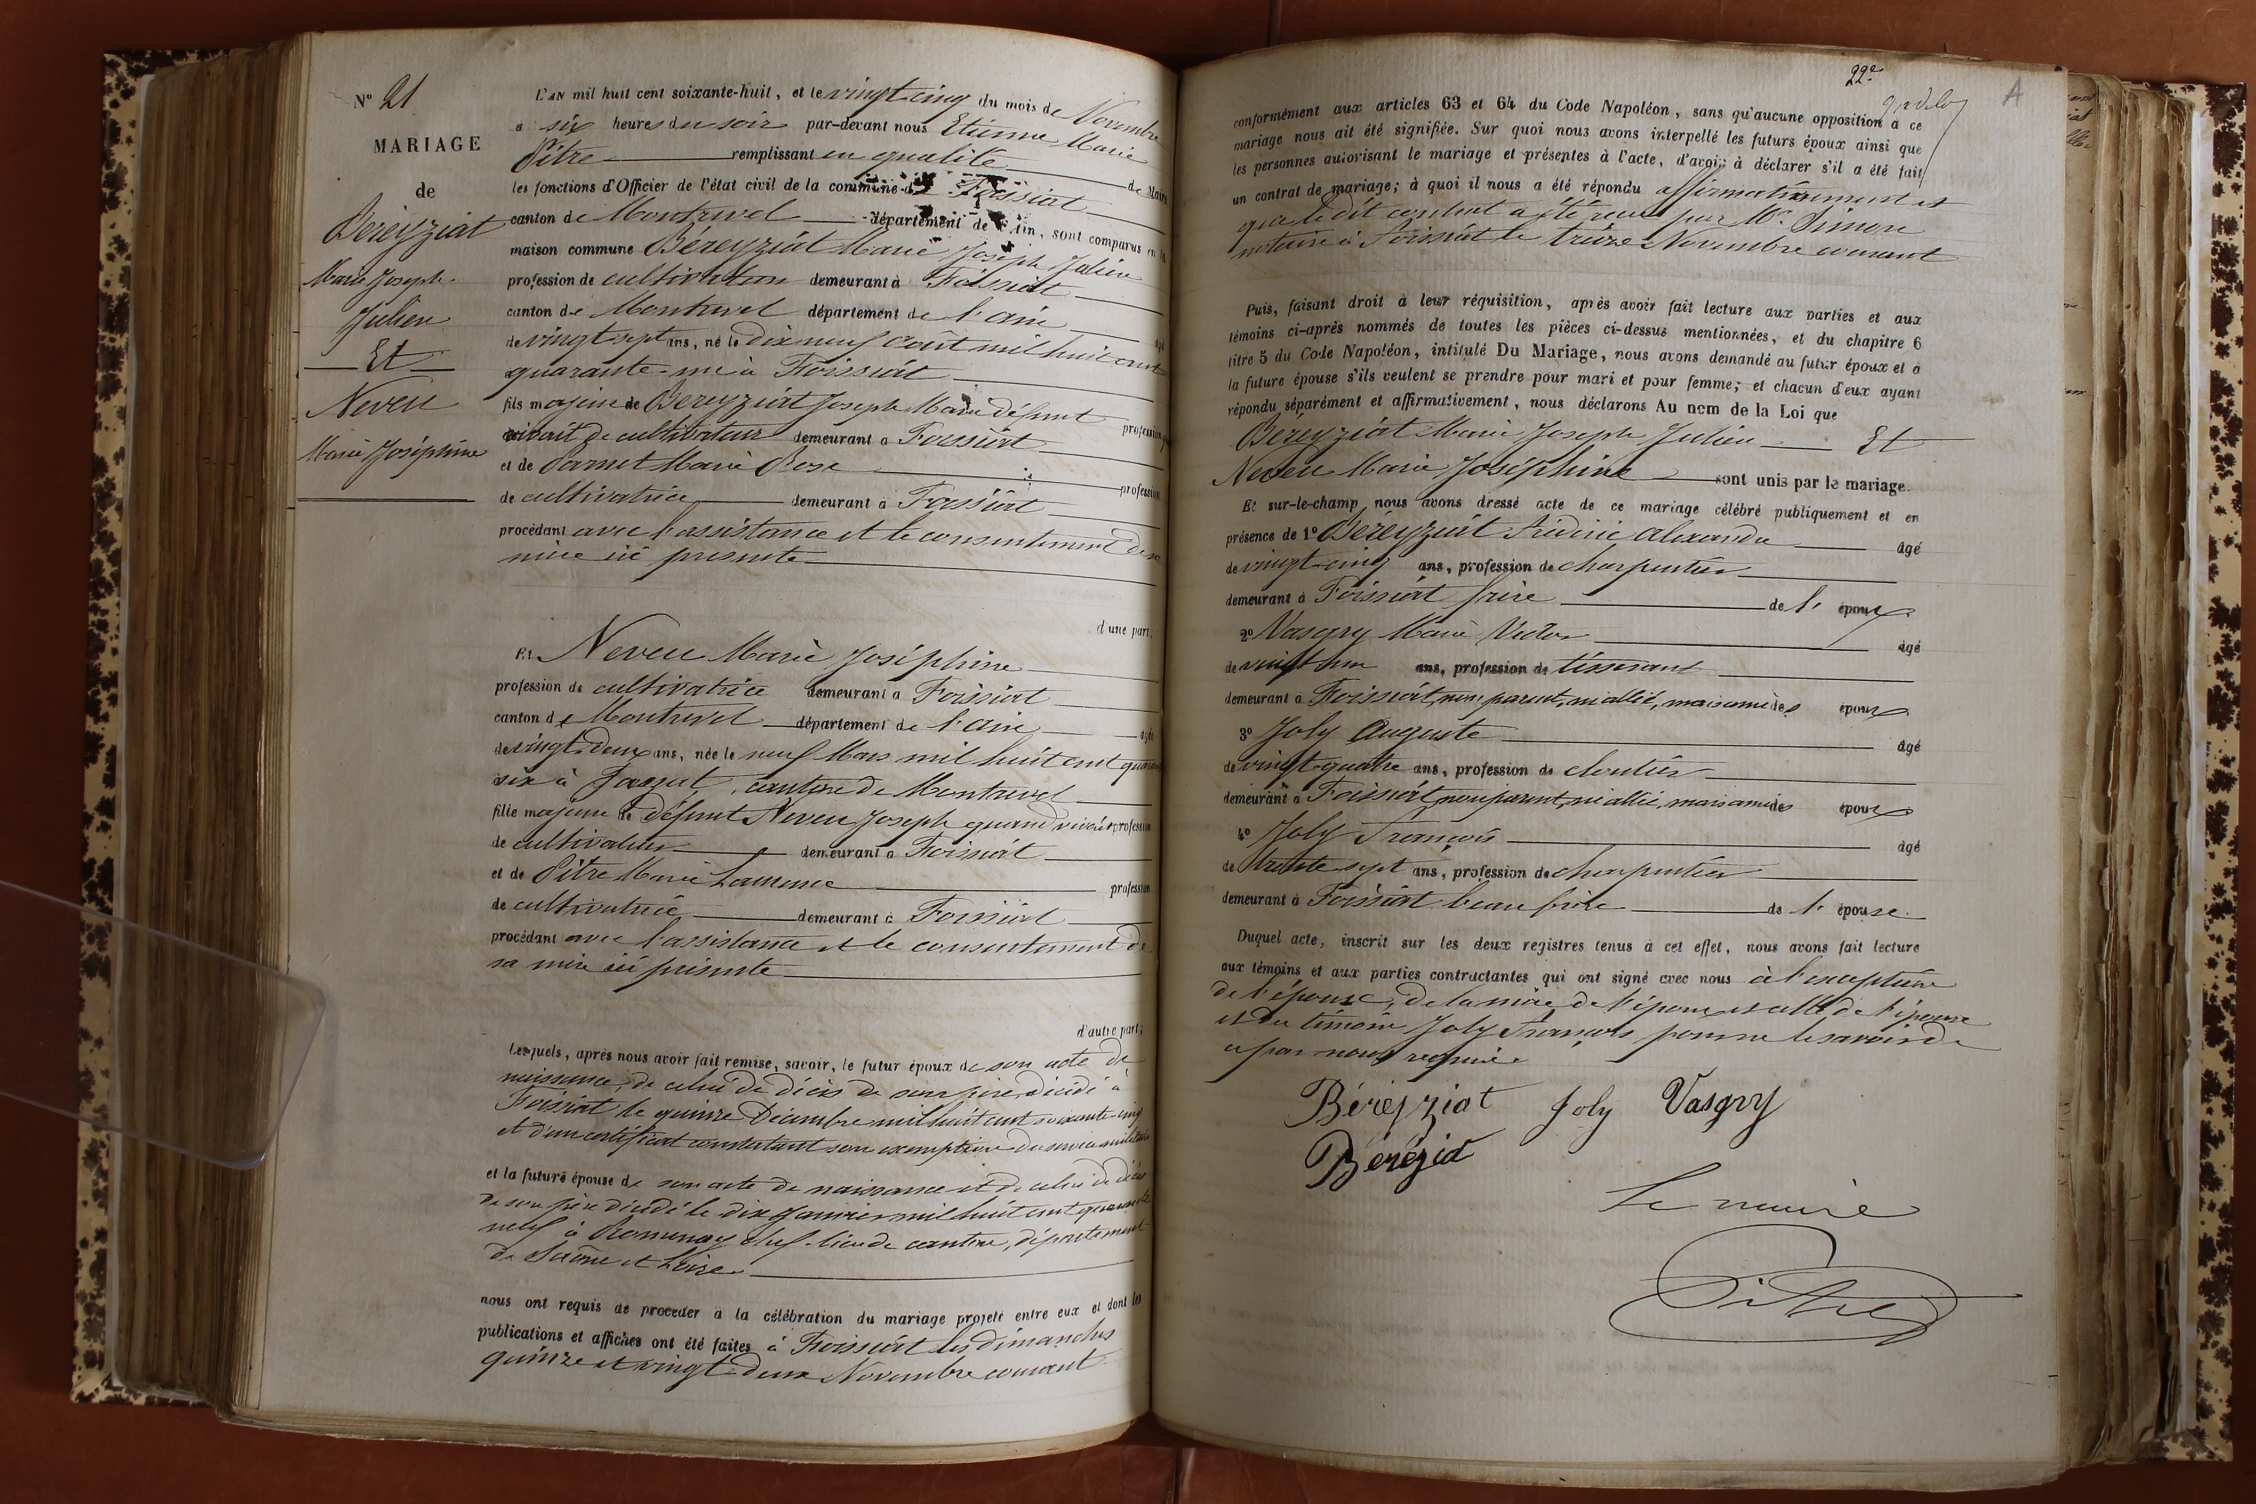 N° 21
MARIAGE
de
Béreyziat
Marie Joseph
Julien
Et
Neveu
Marie Joséphine
L'AN mil huit cent soixante-huit, et le vingt cinq du mois de Novembre
à six heures du soir par-devant nous Etienne Marie
Pitre remplissant en qualité de Maire
les fonctions d'Officier de l'état civil de la commune de Foissiat
canton de Montrevel département de l'Ain, sont comparus en la
maison commune Béreyziat Marie Joseph Julien
profession de cultivateur demeurant à Foissiat
canton de Montrevel département de l'ain
âgé de vingt sept ans, né le dix neuf Août mil huit cent
quarante-un à Foissiat
fils majeur de Béreyziat Joseph Marie défunt profession
vivait de cultivateur demeurant à Foissiat
et de Parnet Marie Rose profession
de cultivatrice demeurant à Foissiat
procédant avec l'assistance et le consentement de sa
mère ici présente
d'une part,
Et Neveu Marie Joséphine
profession de cultivatrice demeurant à Foissiat
canton de Montrevel département de l'ain âgée
de vingt-deux ans, née le neuf Mars mil huit cent quarante
six à Jayat, canton de Montrevel
fille majeure de défunt Neveu Joseph quand vivait profession
de cultivateur demeurant à Foissiat
et de Pitre Marie Laurence profession
de cultivatrice demeurant à Foissiat
procédant avec l'assistance et le consentement de
sa mère ici présente
d'autre part;
Lesquels, après nous avoir fait remise, savoir, le futur époux de son acte de
naissance, de celui de décès de son père, décédé à
Foissiat le quinze Décembre mil huit cent soixante-cinq
et d'un certificat constatant son exemption du service militaire
et la future épouse de son acte de naissance et de celui de décès
de son père décédé le dix Janvier mil huit cent quarante
neuf à Romenay chef-lieu de canton, département
de Saône et Loire
nous ont requis de procéder à la célébration du mariage projeté entre eux et dont les
publications et affiches ont été faites à Foissiat les dimanches
quinze et vingt-deux Novembre courant
22e
A
conformément aux articles 63 et 64 du Code Napoléon, sans qu'aucune opposition à ce
mariage nous ait été signifiée. Sur quoi nous avons interpellé les futurs époux ainsi que
les personnes autorisant le mariage et présentes à l'acte, d'avoir à déclarer s'il a été fait
un contrat de mariage; à quoi il nous a été répondu affirmativement et
que le dit contrat a été reçu par Me Simon
notaire à Foissiat le treize Novembre courant
Puis, faisant droit à leur réquisition, après avoir fait lecture aux parties et aux
témoins ci-après nommés de toutes les pièces ci-dessus mentionnées, et du chapitre 6
titre 5 du Code Napoléon, intitulé Du Mariage, nous avons demandé au futur époux et à
la future épouse s'ils veulent se prendre pour mari et pour femme; et chacun d'eux ayant
répondu séparément et affirmativement, nous déclarons Au nom de la Loi que
Béreyziat Marie Joseph Julien Et
Neveu Marie Joséphine sont unis par le mariage.
Et sur-le-champ nous avons dressé acte de ce mariage célébré publiquement et en
présence de 1° Béreyziat Frédéric Alexandre âgé
de vingt-cinq ans, profession de charpentier
demeurant à Foissiat frère de l' époux
2° Vasgry Marie Victor âgé
de vingt un ans, profession de tisserant
demeurant à Foissiat, non parent, ni allié, mais ami des époux
3° Joly Auguste âgé
de vingt-quatre ans, profession de cloutier
demeurant à Foissiat, non parent, ni allié, mais ami des époux
4° Joly François âgé
de trente sept ans, profession de charpentier
demeurant à Foissiat beau frère de l' épouse
Duquel acte, inscrit sur les deux registres tenus à cet effet, nous avons fait lecture
aux témoins et aux parties contractantes qui ont signé avec nous à l'exception
de l'épouse, de la mère de l'époux et celle de l'épouse
et du témoin Joly François pour ne le savoir de
ce par nous requis
Béreyziat Joly Vasgry
Béréziat
Le maire
Pitre